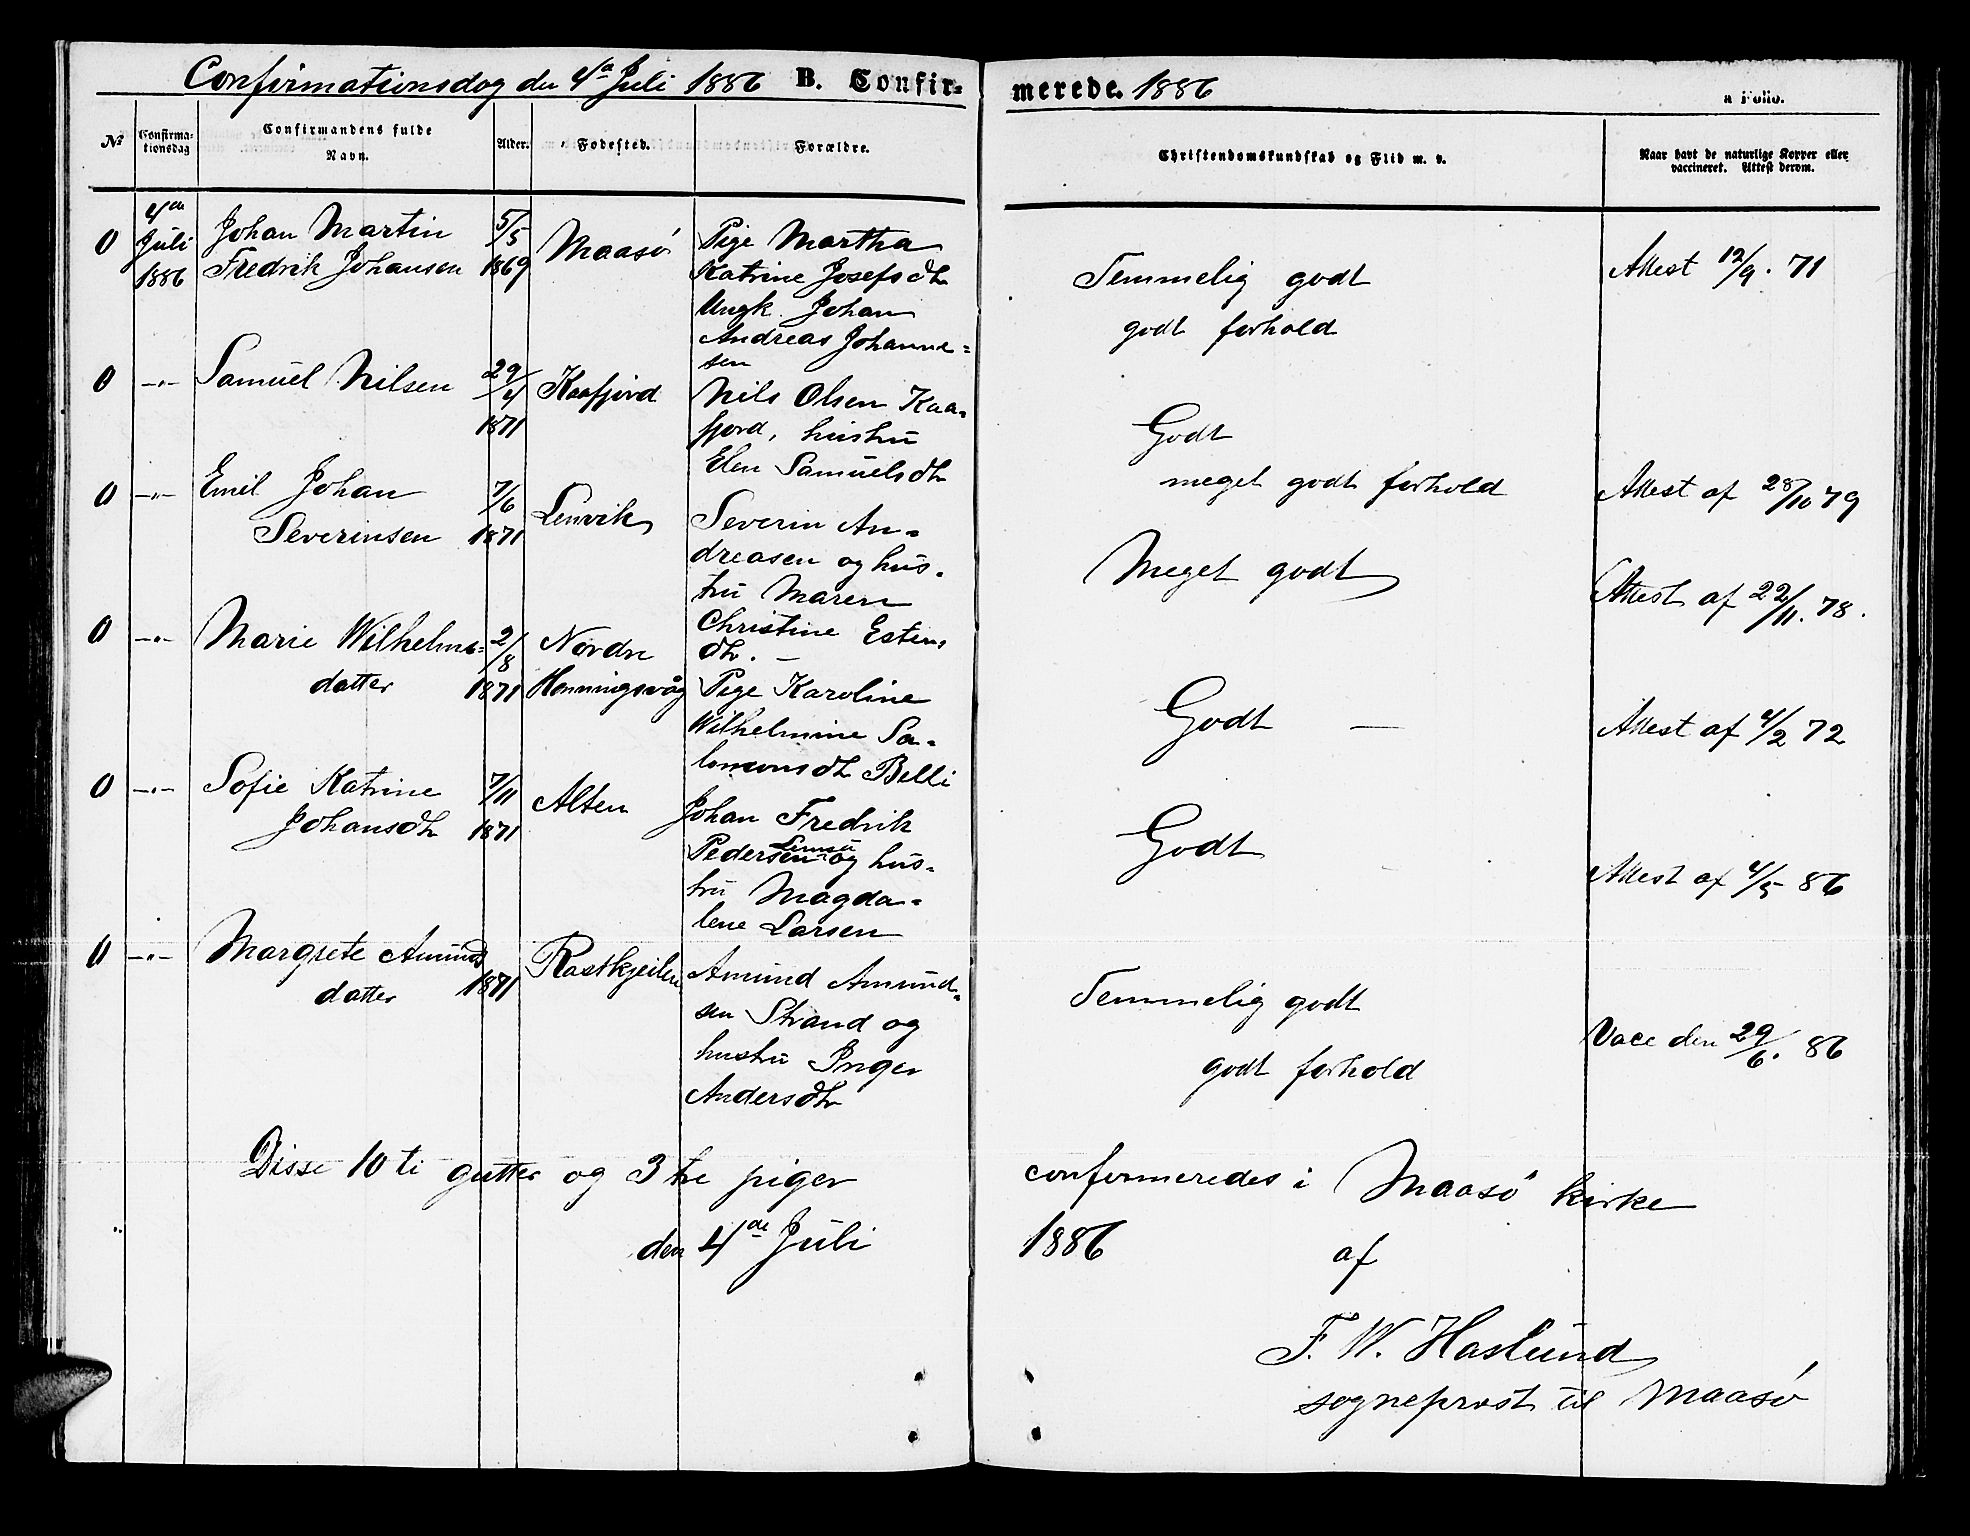 Confirmationsdag den 4de Juli 1886 B. Confir-
merede. 1886
a Folio.
No
Confirma-
tionsdag
Confirmandens fulde
Navn.
Alder.
Fødested.
Forældre.
Christendomskundskab og Flid m. v.
Naar havt de naturlige Kopper eller
vaccineret. Attest derom.
0
4de
Juli
1886
Johan Martin
Fredrik Johansen
5/5
1869
Maasø
Pige Martha
Katrine Josefsdtr
Ungk. Johan
Andreas Johanne-
sen
Temmelig godt
godt forhold
Attest 12/9. 71
0
-"-
Samuel Nilsen
29/4
1871
Kaafjord
Nils Olsen Kaa-
fjord, hustru
Elen Samuelsdtr
Godt
meget godt forhold
Attest af 28/10 79
0
-"-
Emil Johan
Severinsen
7/6
1871
Lenvik
Severin An-
dreasen og hus-
tru Maren
Christine Estens
dtr. -
Meget godt
Attest af 22/11. 78.
0
-"-
Marie Wilhelms-
datter
2/8
1871
Nordre
Honningsvåg
Pige Karoline
Wilhelmine Sa-
lomonsdtr Belli
Godt —
Attest af 4/2 72
0
-"-
Sofie Katrine
Johansdtr
7/11
1871
Alten
Johan Fredrik
Pedersen og hus-
tru Magda-
lene Larsen
Godt
Attest af 4/5 86
0
-"-
Margrete Amunds
datter
1871
Amund Amund-
sen Strand og
hustru Inger
Andersdtr
Temmelig godt
godt forhold
Vacc den 29/6. 86
Disse 10 ti gutter og 3 tre piger confirmeredes i Maasø kirke
den 4de Juli 1886 af
F. W. Haslund
sogneprest til Maasø